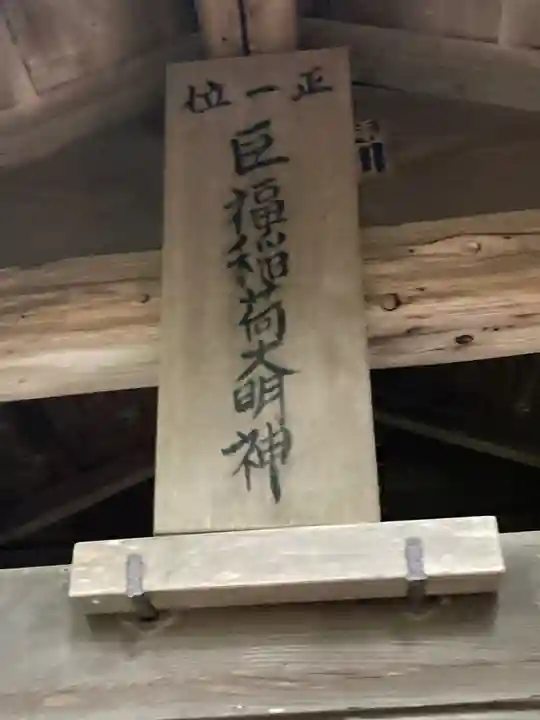 正一位
巨福稲荷大明神